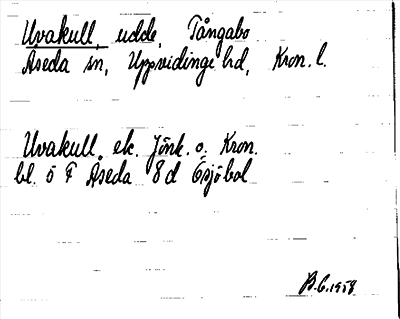 Uvakull, udde, Tångabo
Åseda sn, Uppvidinge hd, Kron. l.
Uvakull ek. Jönk. o. Kron.
bl. 5 F Åseda 8d Ösjöbol
B.G. 1958